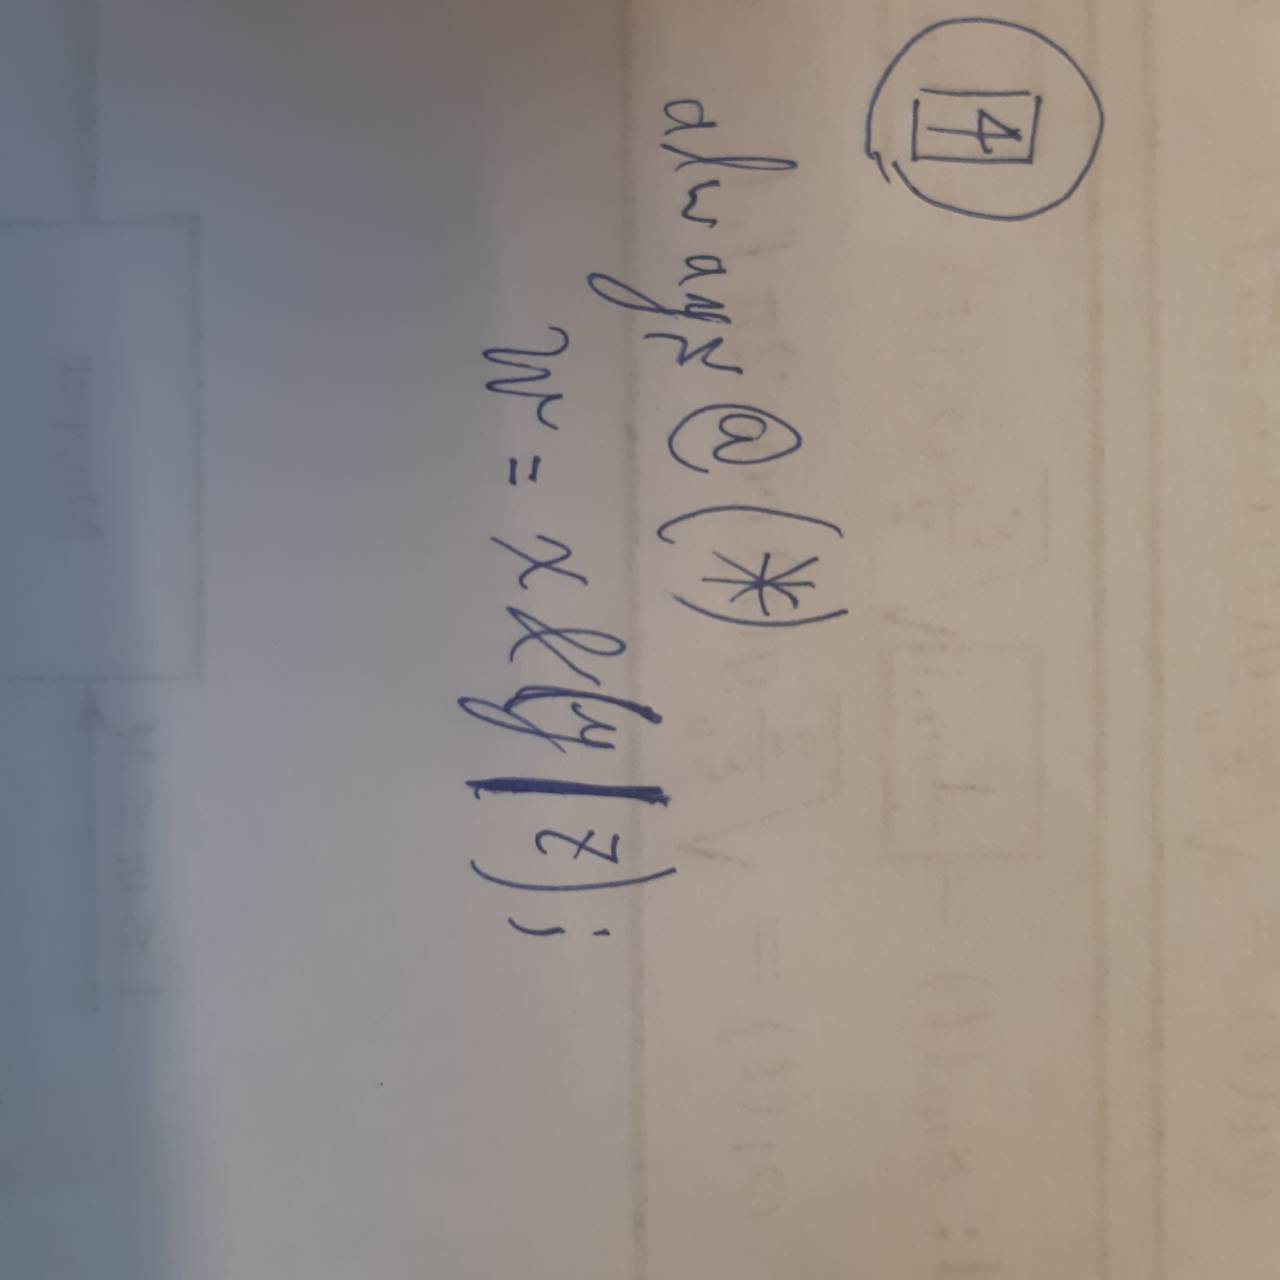 4
always @ (*)
w = x & (y | z);